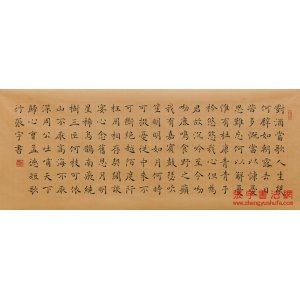 對酒當歌人生幾
何譬如朝露去日
苦多慨當以慷憂
思難忘何以解憂
惟有杜康青青子
衿悠悠我心但為
君故沉吟至今呦
呦鹿鳴食野之蘋
我有嘉賓鼓瑟吹
笙明明如月何時
可掇憂從中來不
可斷絕越陌度阡
枉用相存契闊談
讌心念舊恩月明
星稀烏鵲南飛繞
樹三匝何枝可依
山不厭高海不厭
深周公吐哺天下
歸心曹孟德短歌
行張宇書
张宇书法网
www.zhangyushufa.com